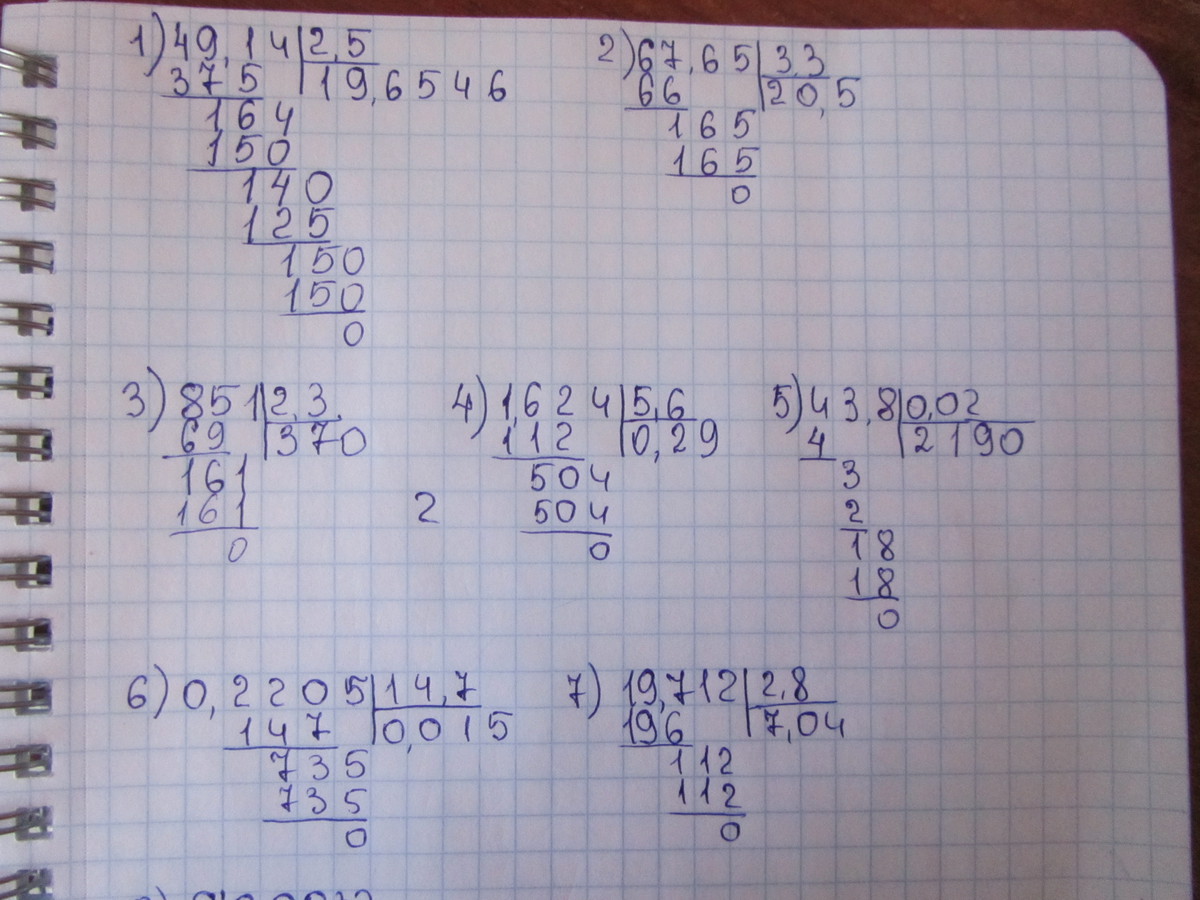 1) 49,14 2,5
375 19,6546
164
150
140
125
150
150
0
2) 67,65 3,3
66 20,5
165
165
0
3) 851 2,3
69 370
161
161
0
2
4) 1,624 5,6
112 0,29
504
504
0
5) 43,8 0,02
4 2190
3
2
18
18
0
6) 0,2205 14,7
147 0,015
735
735
0
7) 19,712 2,8
196 7,04
112
112
0